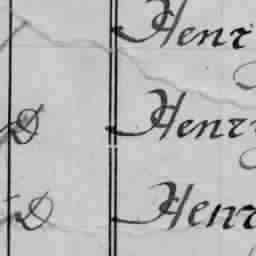 Henr
D Henr
D Henr